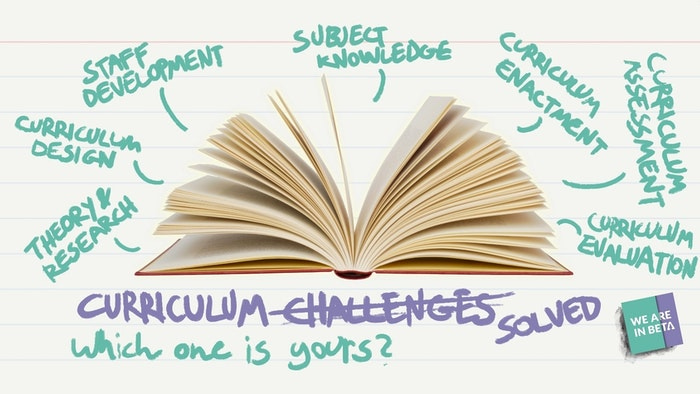 STAFF
DEVELOPMENT
SUBJECT
KNOWLEDGE
CURRICULUM
ENACTMENT
CURRICULUM
ASSESSMENT
CURRICULUM
DESIGN
THEORY &
RESEARCH
CURRICULUM
EVALUATION
CURRICULUM CHALLENGES SOLVED
Which one is yours?
WE ARE
IN BETA